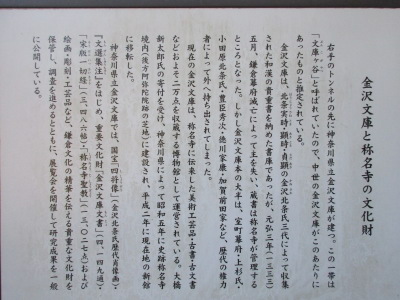 金沢文庫と称名寺の文化財
右手のトンネルの先に神奈川県立金沢文庫が建つ。この一帯は
「文庫ヶ谷」と呼ばれていたので、中世の金沢文庫がこのあたりに
あったものと推定されている。
金沢文庫は、北条実時・顕時・貞顕の金沢北条氏三代によって収集
された和漢の貴重書を納めた書庫であったが、元弘三年(一三三三)
五月、鎌倉幕府滅亡によって主を失い、蔵書は称名寺が管理する
ところとなった。しかし金沢文庫本の大半は、室町幕府・上杉氏・
小田原北条氏・豊臣秀次・徳川家康・加賀前田家など、歴代の権力
者によって外へ持ち出されてしまった。
現在の金沢文庫は、称名寺に伝来した美術工芸品・古書・古文書
などおよそ二万点を収蔵する博物館として運営されている。大橋
新太郎氏の寄付を受け、神奈川県によって昭和五年に史跡称名寺
境内(後方阿弥陀院跡の空地)に建設され、平成二年に現在地の新館
に移転した。
神奈川県立金沢文庫では、国宝「四将像」(金沢北条氏歴代肖像画)・
『文選集注』をはじめ、重要文化財「金沢文庫文書」(四、一四九通)・
「宋版一切経」(三、四八六帖)・「称名寺聖教」(一三、〇二七点)および
絵画・彫刻・工芸品など、鎌倉文化の精華を伝える貴重な文化財を
保管し、調査を進めるとともに、展覧会を開催して研究成果を一般
に公開している。